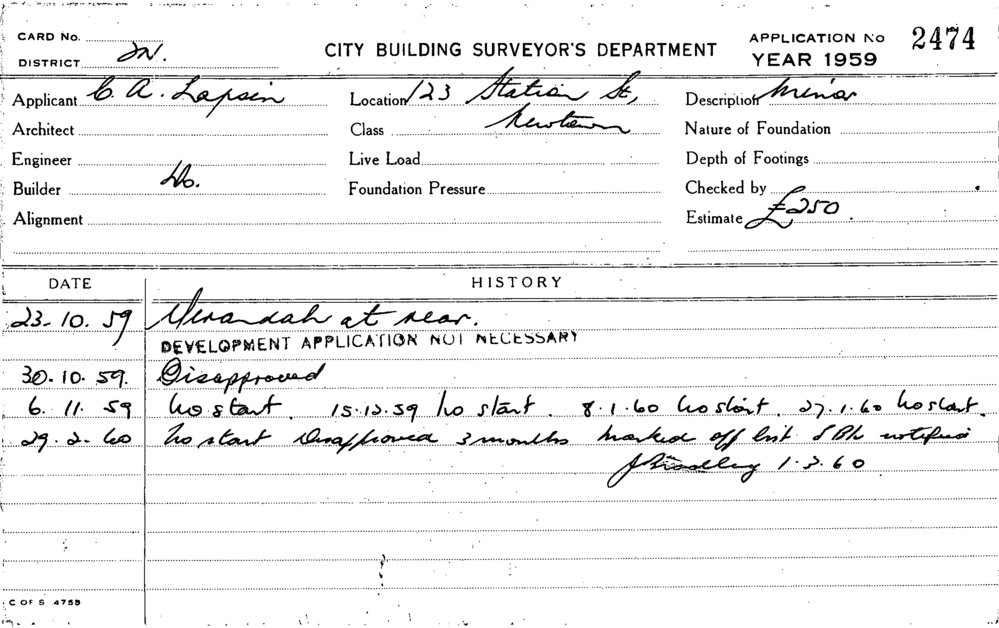 CARD No.
DISTRICT
CITY BUILDING SURVEYOR'S DEPARTMENT
APPLICATION No 2474
YEAR 1959
Applicant C. A. Lapsin
Location 123 Station St,
Newtown
Description Minor
Architect
Class
Nature of Foundation
Engineer
Live Load
Depth of Footings
Builder Do.
Foundation Pressure
Checked by
Alignment
Estimate £250.
DATE HISTORY
23.10.59 Verandah at rear.
DEVELOPMENT APPLICATION NOT NECESSARY
30.10.59. Disapproved
6.11.59 No start. 15.12.59 No start. 8.1.60 No start. 27.1.60 No start.
29.2.60 No start Disapproved 3 months marked off list notified
1.3.60
C OF S 4755